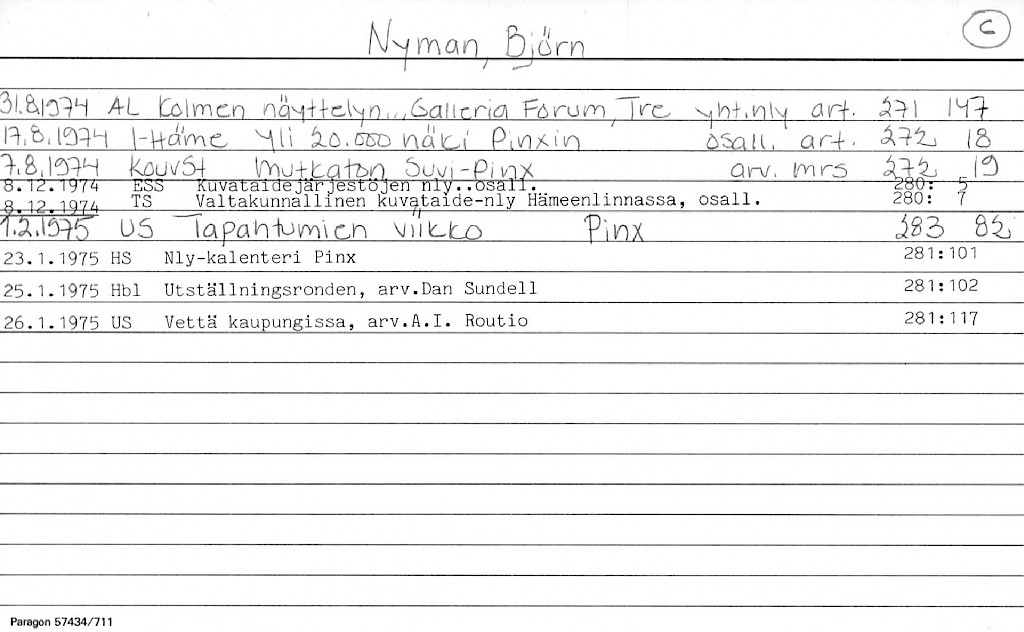 C
Nyman, Björn
31.8.1974 AL Kolmen näyttelyn... Galleria Forum, Tre yht.nly art. 271 147
17.8.1974 I-Häme Yli 20.000 näki Pinxin osall. art. 272 18
7.8.1974 KouvSt Mutkaton Suvi-Pinx arv. mrs 272 19
8.12.1974 ESS Kuvataidejärjestöjen nly..osall. 280: 5
8.12.1974 TS Valtakunnallinen kuvataide-nly Hämeenlinnassa, osall. 280: 7
1.2.1975 US Tapahtumien viikko Pinx 283 82
23.1.1975 HS Nly-kalenteri Pinx 281:101
25.1.1975 Hbl Utställningsronden, arv.Dan Sundell 281:102
26.1.1975 US Vettä kaupungissa, arv.A.I. Routio 281:117
Paragon 57434/711